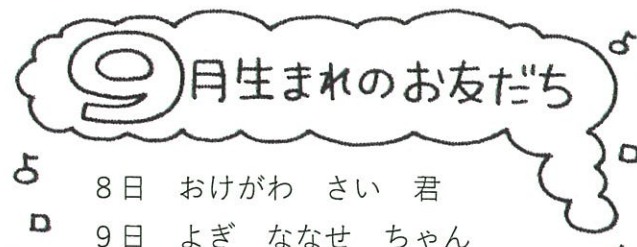 9月生まれのお友だち
8日 おけがわ さい 君
9日 よぎ ななせ ちゃん